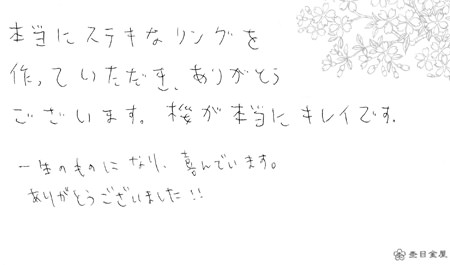 本当にステキなリングを
作っていただき、ありがとう
ございます。桜が本当にキレイです。
一生のものになり、喜んでいます。
ありがとうございました!!
杢目金屋